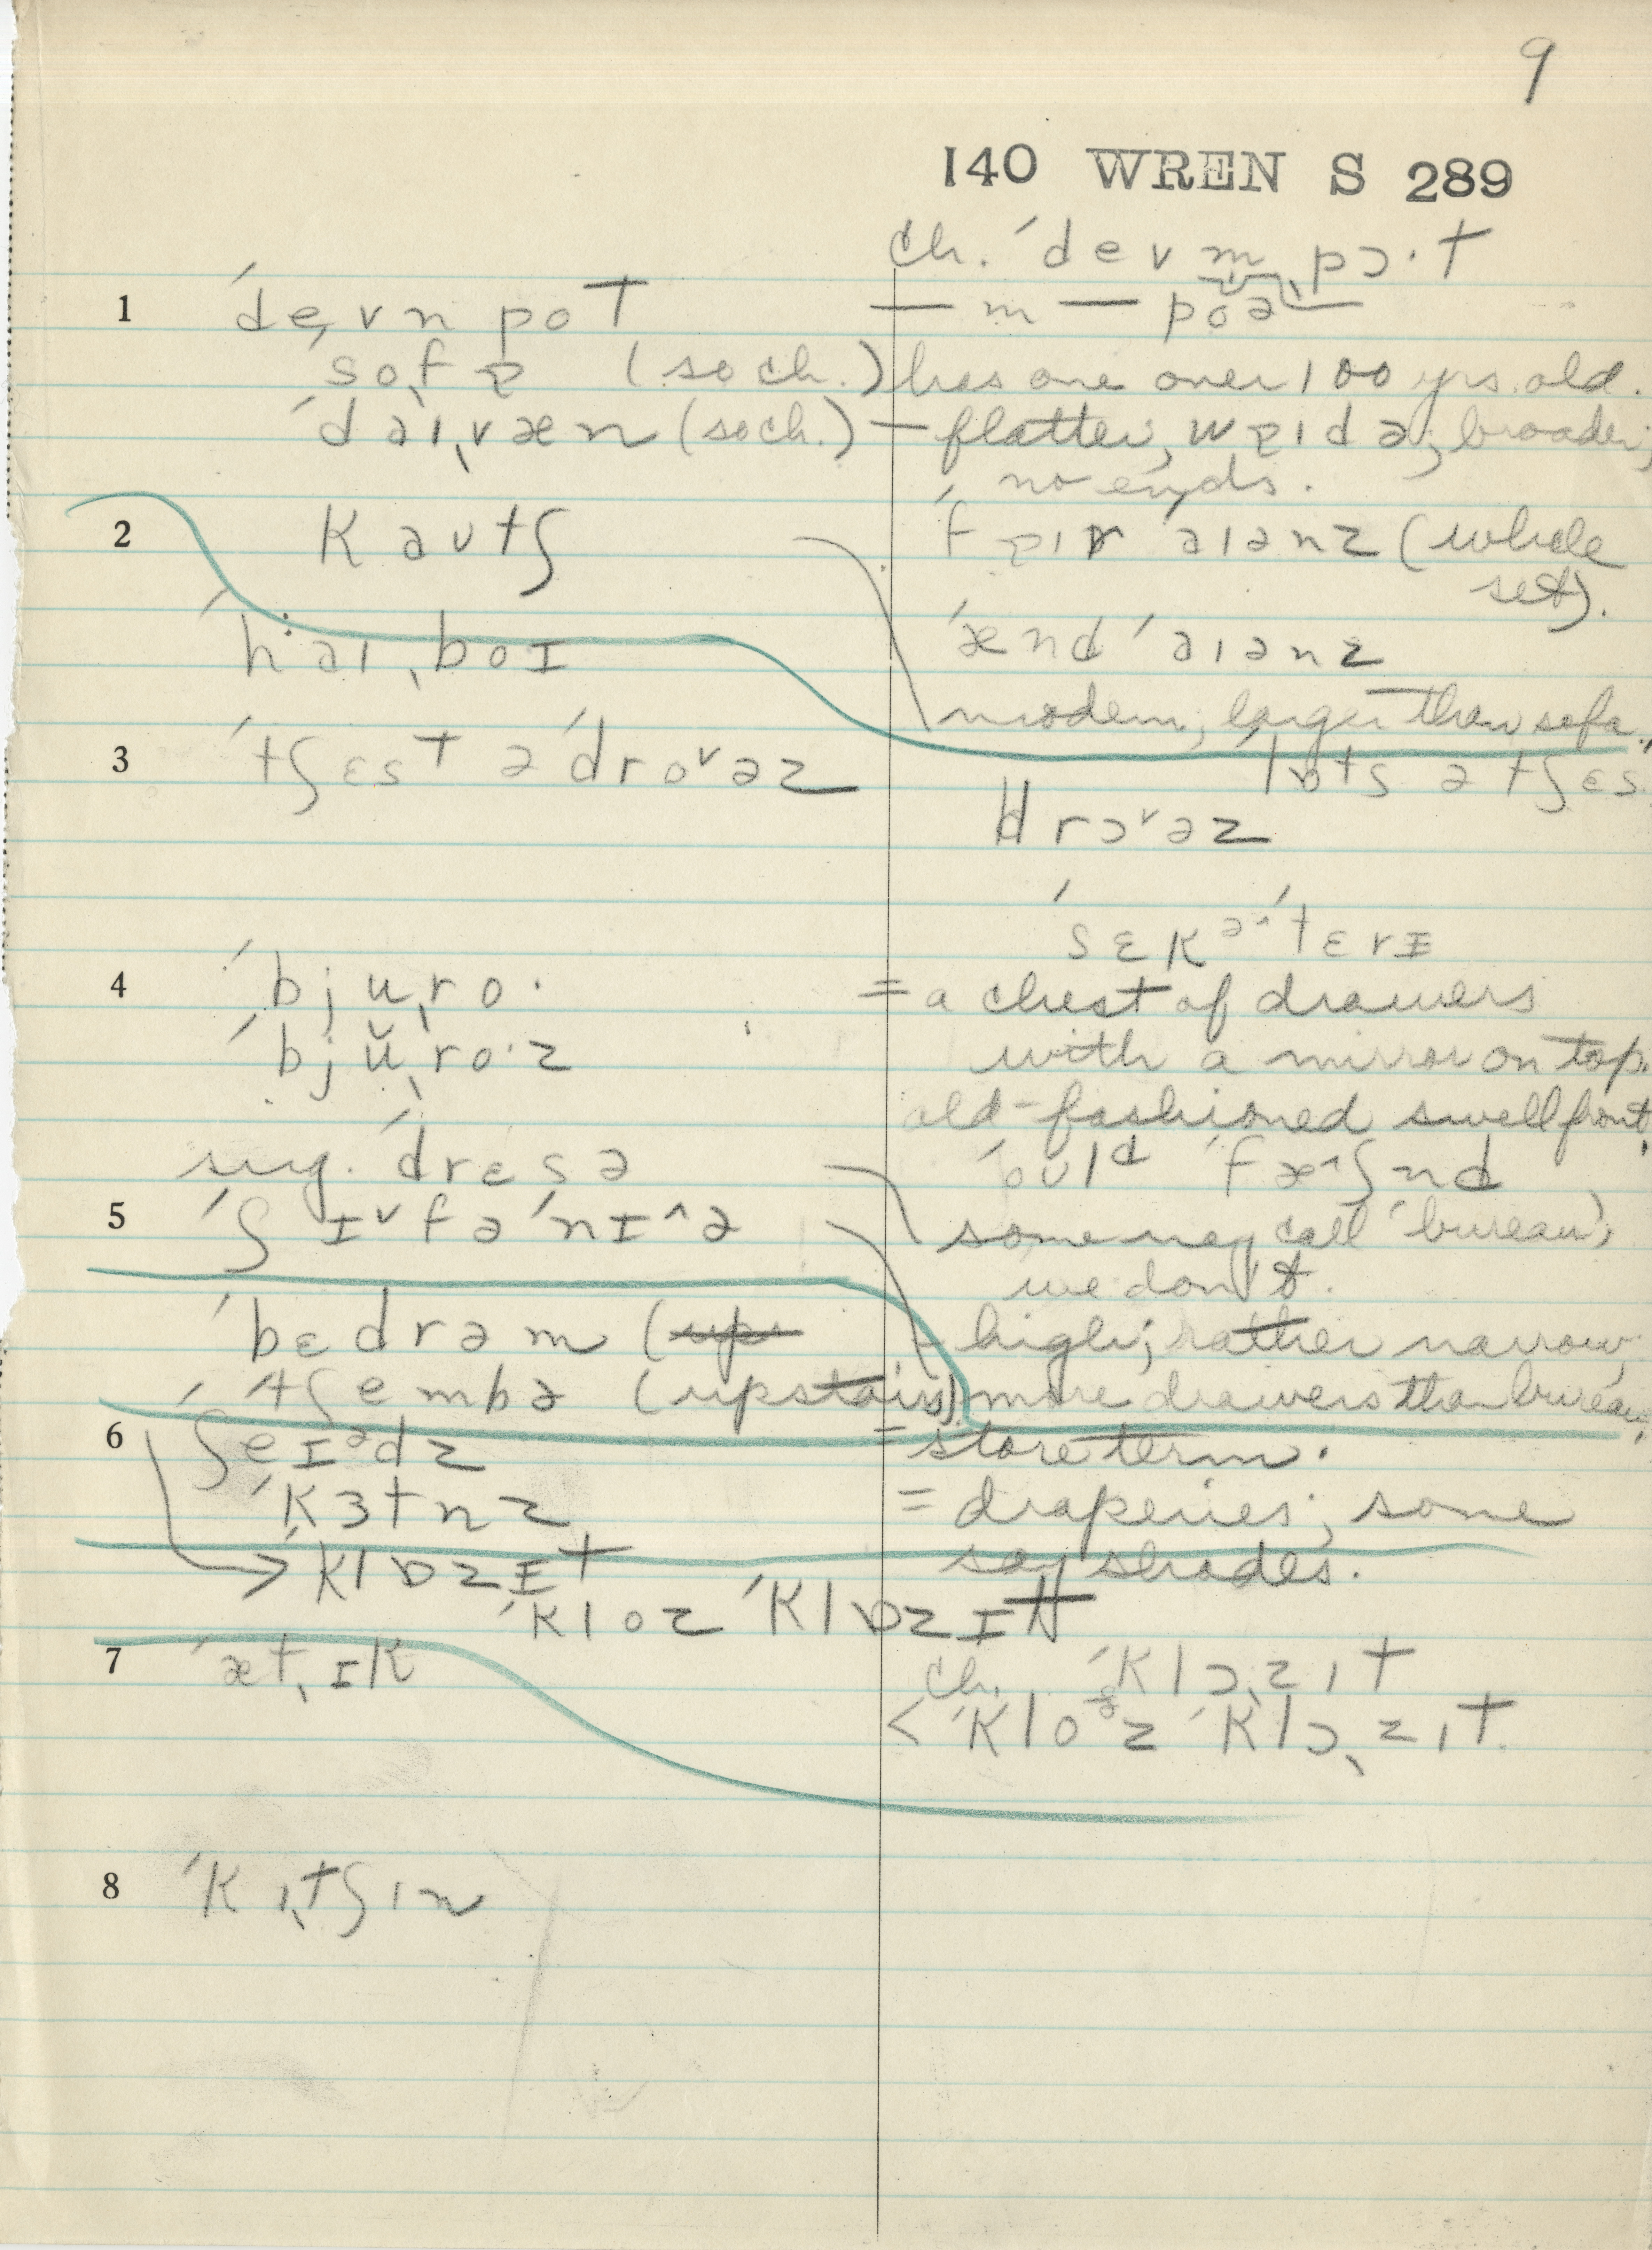 9
140 WREN S 289
ch. ˈdevm̩ˌpɔ·t
1 ˈdeˌvn pot — m — poə —
ˈsoˌfɐ (so ch.) has one over 100 yrs. old.
ˈdaɪˌvæn (so ch.) — flatter, wɐɪdə; broader;
no ends.
2 kəʊtʃ ˈfɐɪr ˈaɪənz (whole
set).
ˈhaɪˌboɪ ˈænd ˈaɪənz
modern; larger than sofa.
3 ˈtʃɛst ə ˈdroᵛəz ˈlɒts ə tʃɛs
drɔᵛəz
ˈsɛkəˈtɛrɪ
4 ˈbjuˌro· = a chest of drawers
ˈbjŭˌro·z with a mirror on top.
old-fashioned swell front.
sug. ˈdrɛsə ˈoʊlᵈ ˈfæ^ʃnd
5 ˈʃɪᵛfəˈnɪ^ə some may call 'bureau';
we don't.
ˈbɛdrəm (up high; rather narrow,
ˈtʃembə (upstairs) more drawers than bureau.
6 ʃeɪᵊdz = store term.
ˈkɜtnz = draperies; some
say shades.
→ ˈklɒzɪt
ˈkloz ˈklɒzɪt
7 ˈætˌɪk ch. ˈklɔˌzɪt
< ˈkloᶞz ˈklɔˌzɪt.
8 ˈkɪˌtʃɪn